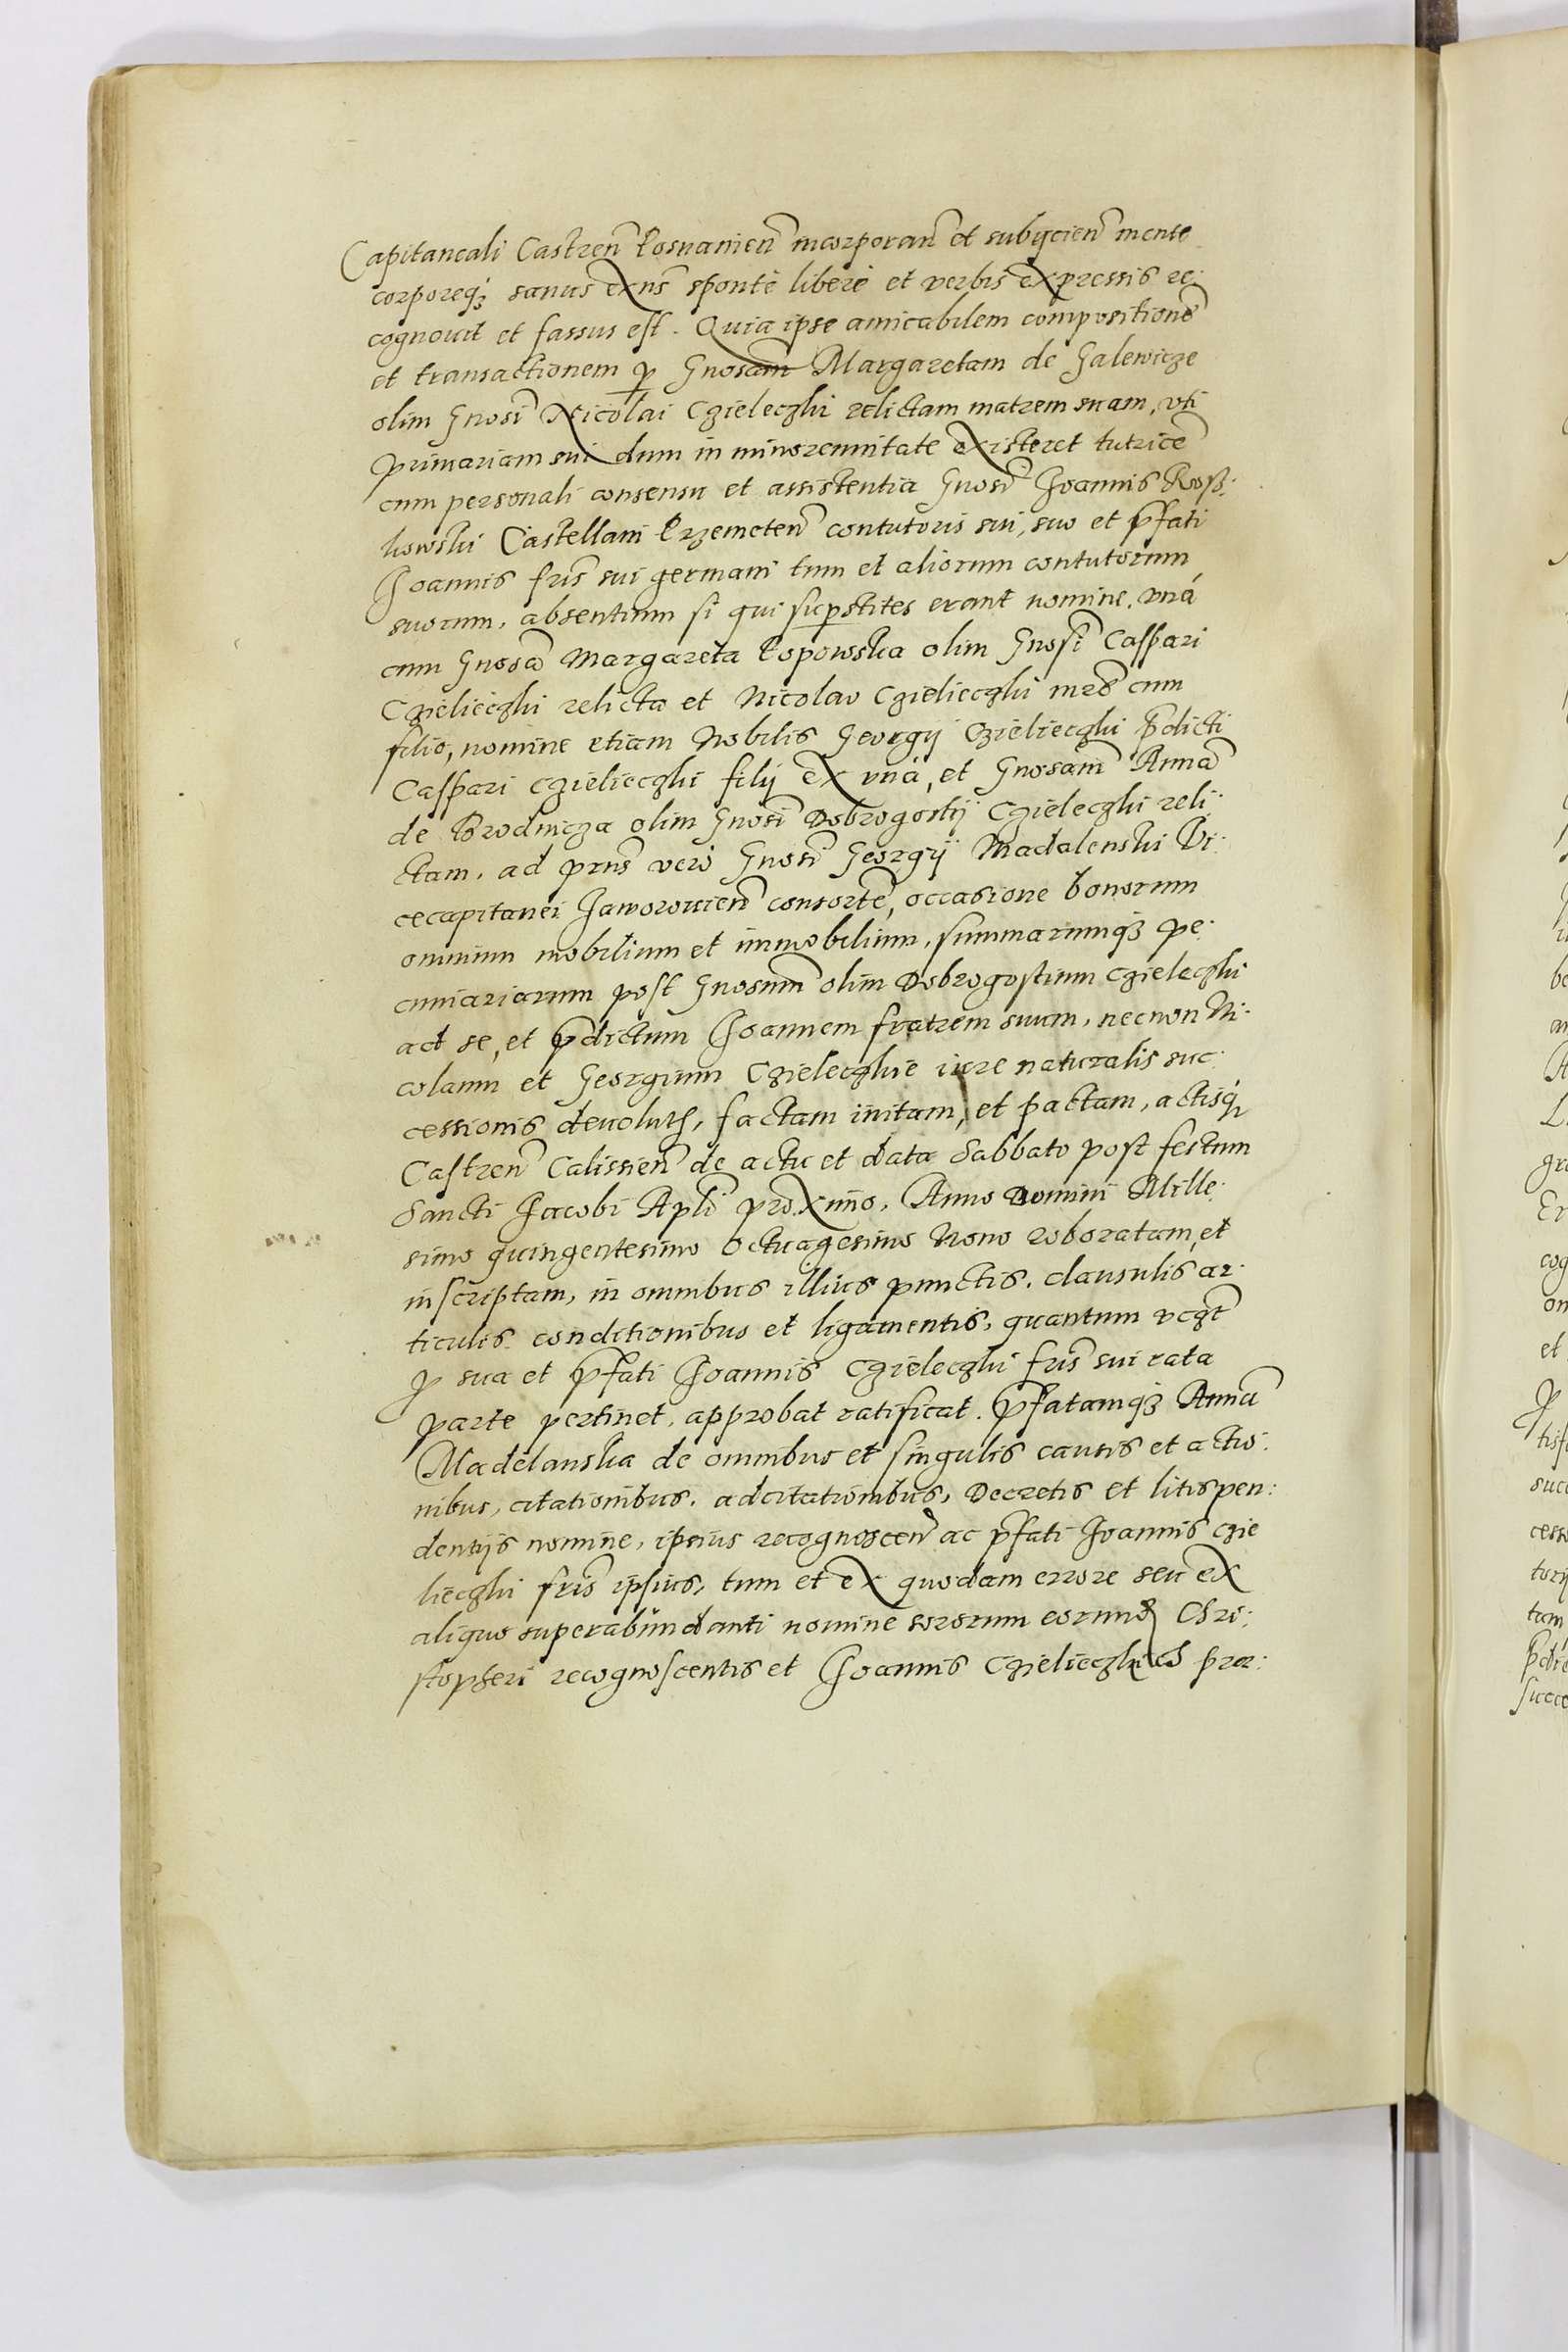 Capitaneali Castren Posnanien incorporan et subijcien mente
corporeq3 sanus exns sponte libere et verbis expressis re:
cognovit et fassus est. Quia ipse amicabilem compositione
et transactionem p Gnosam Margaretam de Galewicze
olim Gnosi Nicolai Czieleczki relictam matrem suam, vti
primariam sui dum in minorennitate existeret tutrice
cum personali consensu et assistentia Gnosi Joannis Roß:
kowski Castellani Przemeten contutoris sui, suo et pfati
Joannis fris sui germani tum et aliorum contutorum
suorum, absentium si qui supstites erant nomine. vna
cum Gnosa Margareta Popowska olim Gnosi Caspari
Czielieczki relicta et Nicolao Czielieczki mre cum
filio, nomine etiam Nobilis Georgij Czielieczki pdicti
Caspari Czielieczki filij ex vna, et Gnosam Anna
de Brodnicza olim Gnosi Dobrogostij Czieleczki reli:
ctam, ad prns vero Gnosi Georgij Madalenski Vi:
cecapitanei Jaworovien consorte, occasione bonorum
omnium mobilium et immobilium, summarumq3 pe:
cuniariarum post Gnosum olim Dobrogostium Czieleczki
ad se, et pdictum Joannem fratrem suum, necnon Ni:
colaum et Georgium Czieleczkie iure naturalis suc:
cessionis devolut, factam initam, et pactam, actisq
Castren Calissien de actu et data Sabbato post festum
Sancti Jacobi Apli proximo, Anno Domini Mille:
simo quingentesimo Octuagesimo Nono roboratam, et
inscriptam, in omnibus illius punctis. clausulis ar:
ticulis conditionibus et ligamentis, quantum vcgt
p sua et pfati Joannis Czieleczki fris sui rata
parte pertinet, approbat ratificat. pfatamq3 Anna
Madelanska de omnibus et singulis causis et actio:
nibus, citationibus. adcitationibus, Decretis et litispen:
dentijs nomine, ipsius recognoscen ac pfati Joannis Czie
lieczki fris ipsius, tum et ex quodam errore seu ex
aliquo superabundanti nomine sororum eorund Chri:
stopheri recognoscentis et Joannis Czielieczkich prer: